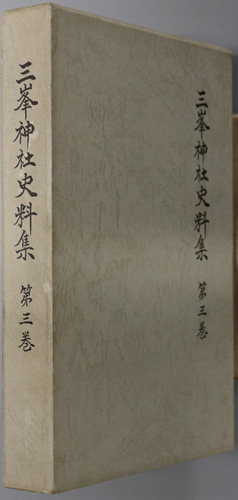 三峯神社史料集 第三巻
三峯神社史料集 第三巻